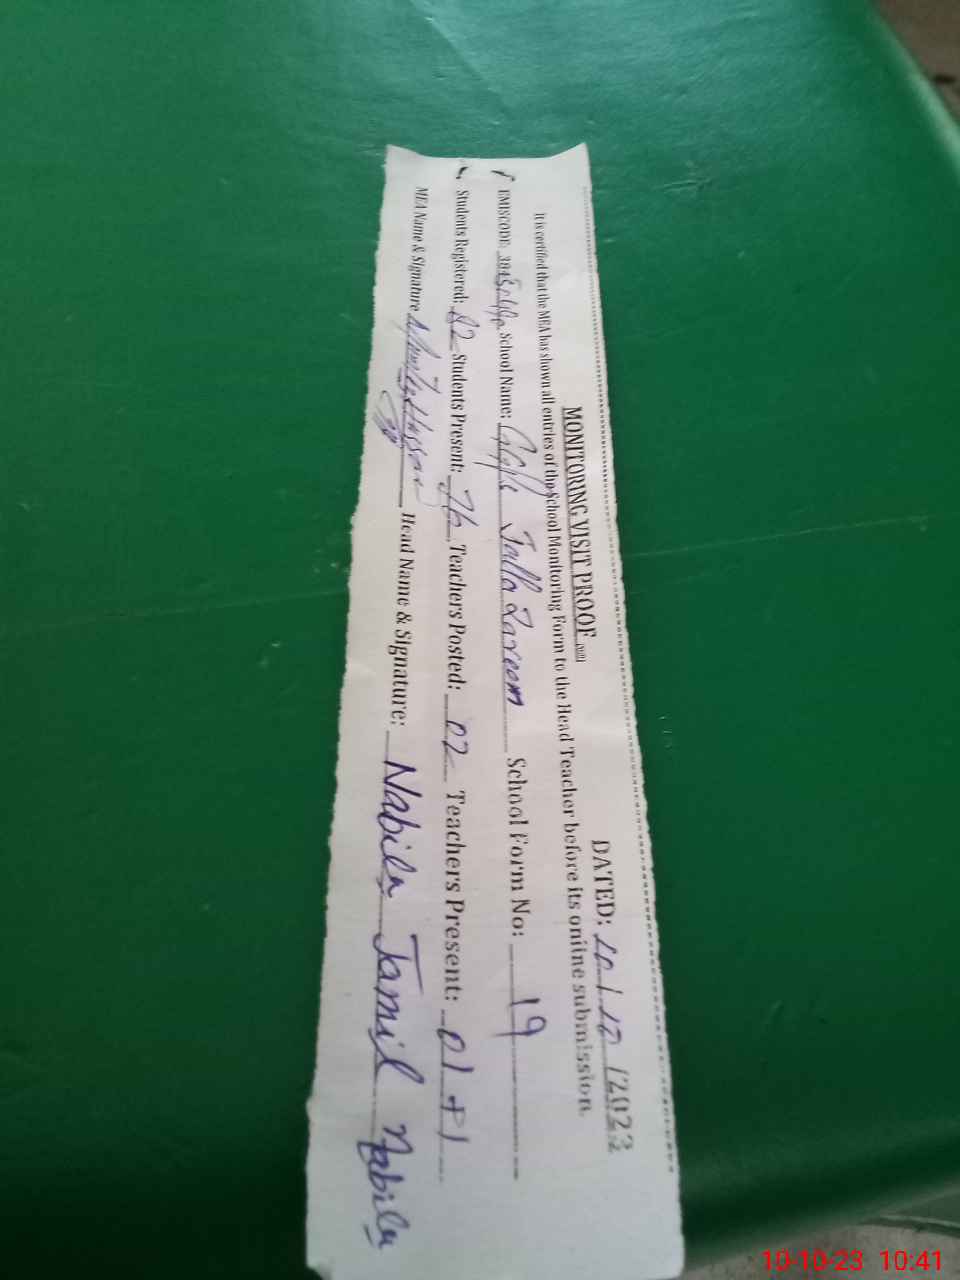 MONITORING VISIT PROOF
DATED: 10/10/2023
It is certified that the MEA has shown all entries of the School Monitoring Form to the Head Teacher before its online submission.
EMISCODE: School Name: Jalla Lareem School Form No: 19
Students Registered: 82 Students Present: 76 Teachers Posted: 02 Teachers Present: 01+1
MEA Name & Signature Hassan Head Name & Signature: Nabila Jamil Nabila
10-10-23 10:41